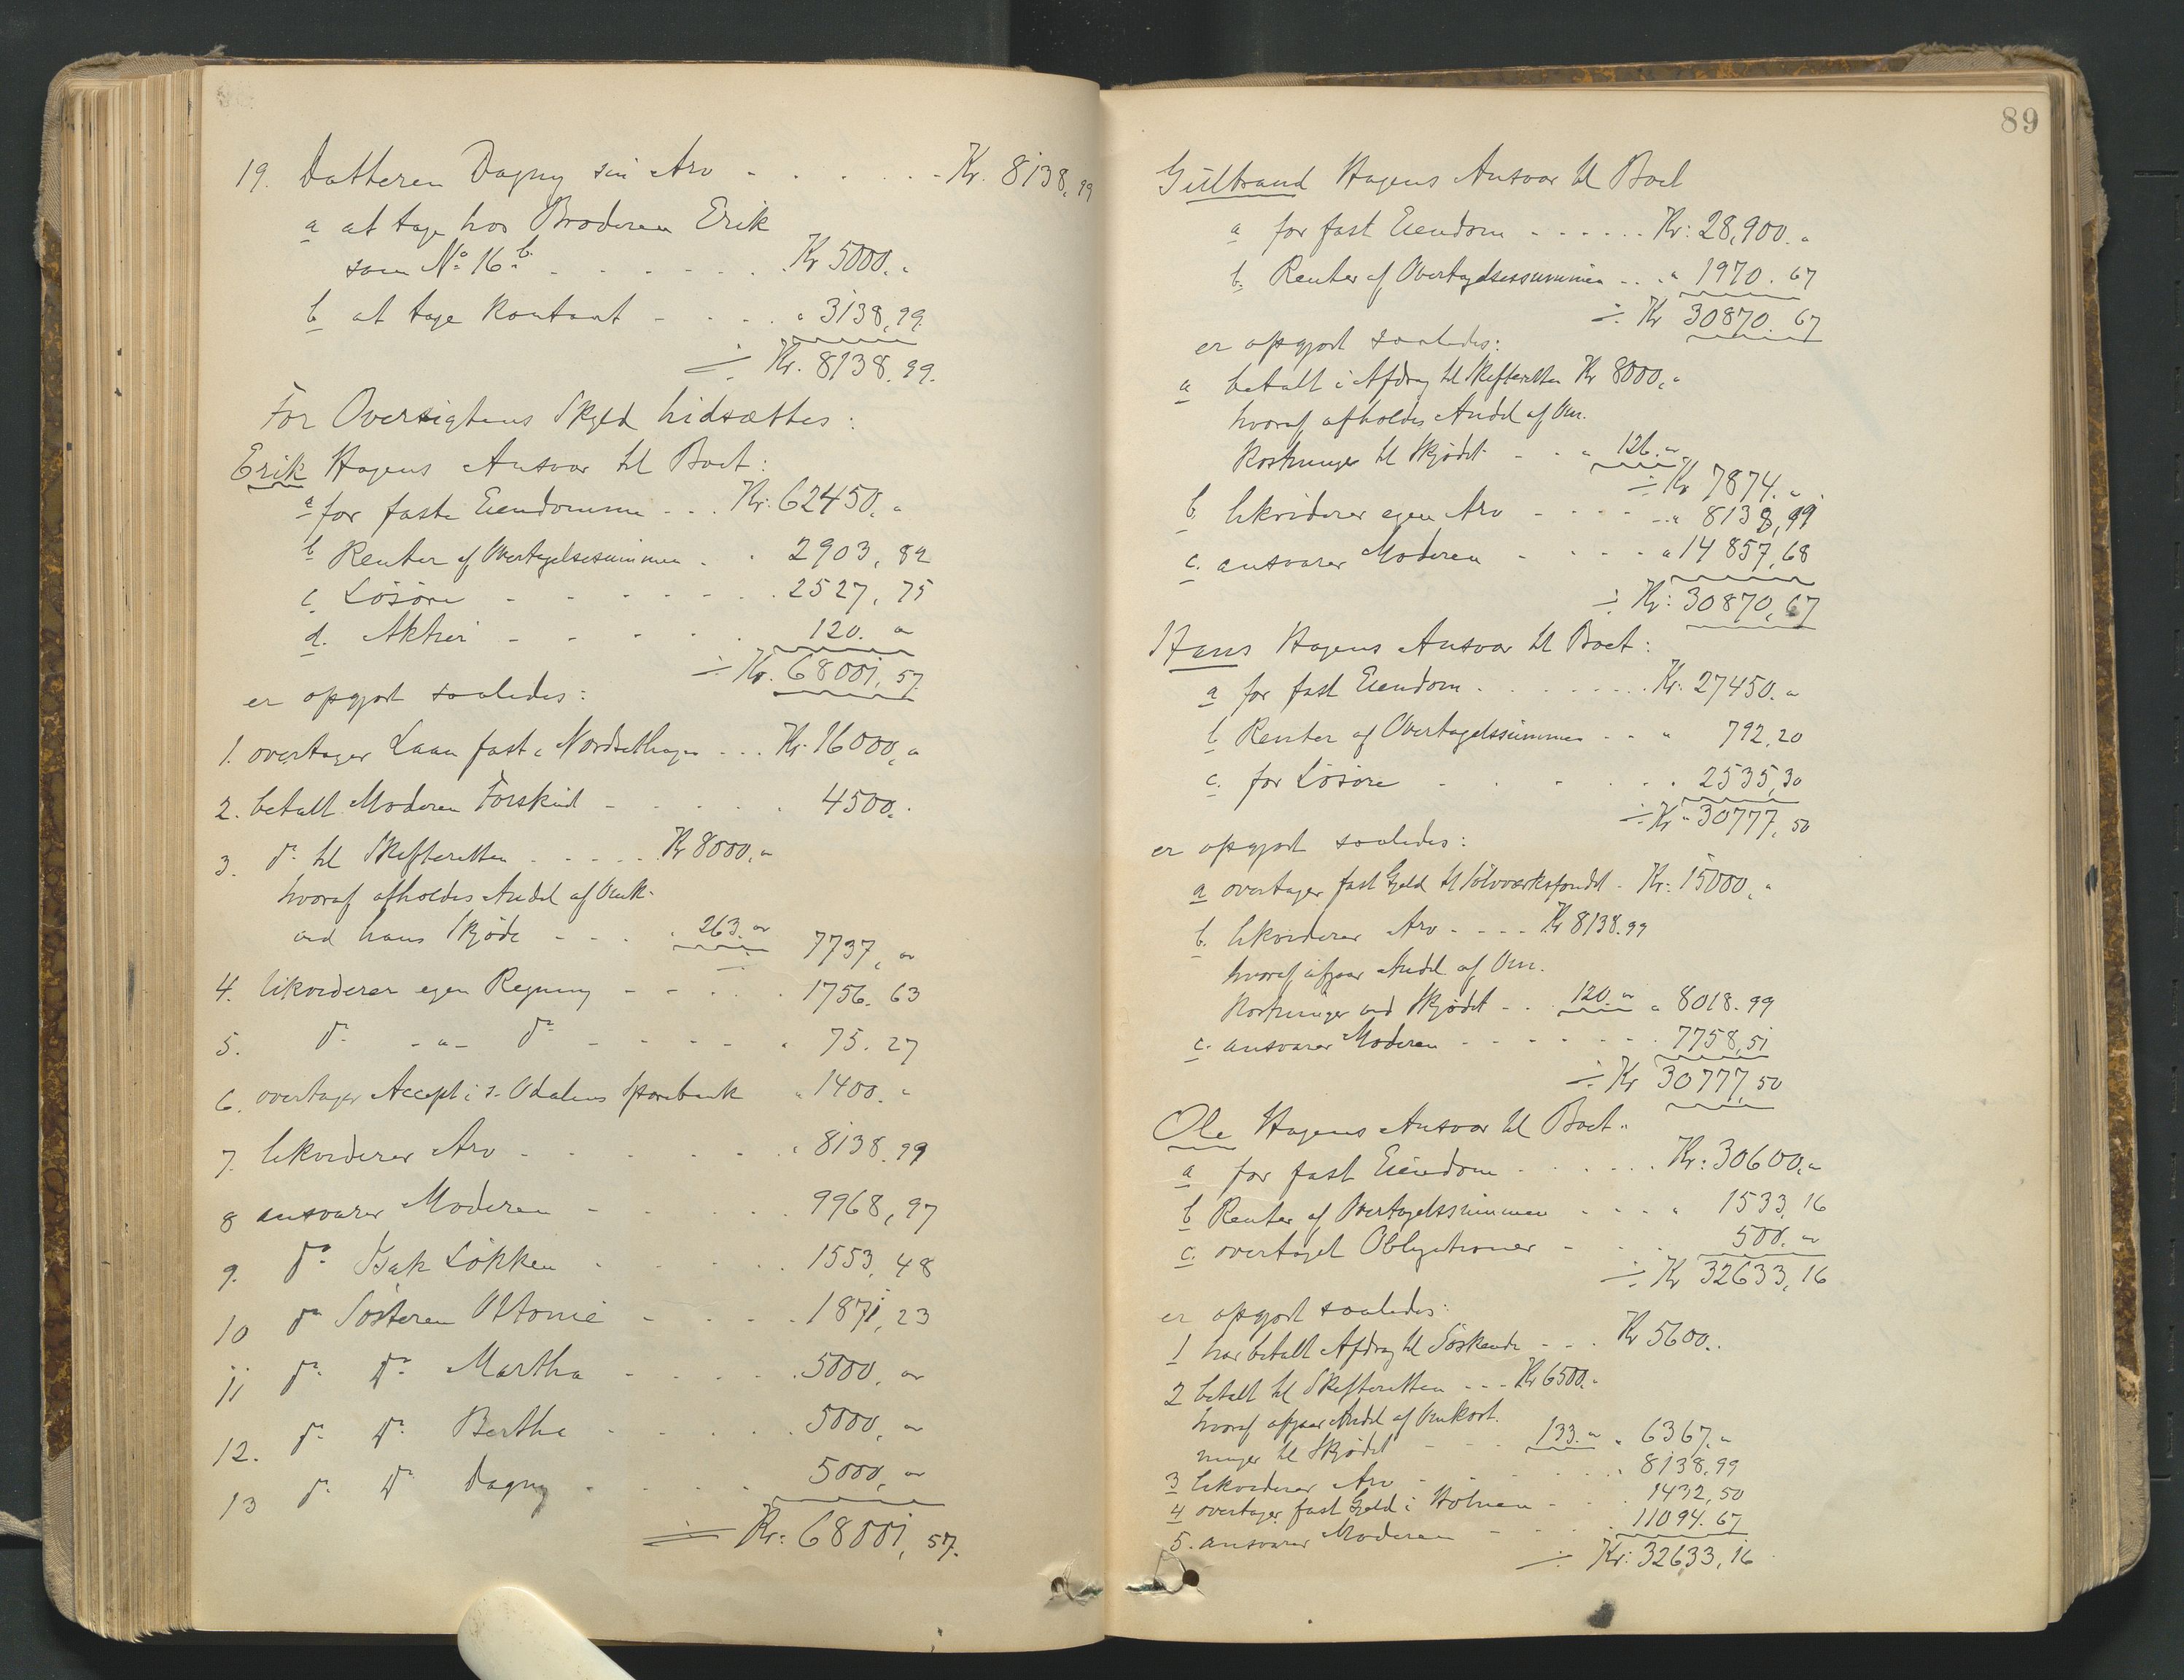 19. Datteren Dagny sin Arv - . . . . . - Kr. 8138,99
a at tage hos Broderen Erik
som No 16 b. - . . - . - . Kr 5000. "
b at tage Kontant - - . . " 3138,99.
÷ Kr. 8138.99.
For Oversigtens Skyld hidsættes:
Erik Hagens Ansvar til Boet:
a for faste Eiendomme . . . Kr: 62450. "
b Renter af Overtagelsessummen . . 2903,82
c. Løsøre - - - - - - . 2527,75
d. Aktier - - - - . 120. "
÷ Kr. 68001,57.
er opgjort saaledes:
1. overtager Laan fast i Nordsethagen . . . Kr: 16000, "
2. betalt Moderen Forskud - - . . . . 4500.
3. do til Skifteretten . . . . . Kr 8000. "
hvoraf afholdes Andel af Omk-
ved hans Skjøde - - . . 263. " 7737, "
4. likviderer egen Regning - - . . . 1756.63
5. do - " - do - - - - - " 75.27
6. overtager Accept i S. Odalens Sparebank " 1400. "
7. likviderer Arv - - - - - - " 8138.99
8 ansvarer Moderen - - - - . 9968,97
9. do Isak Løkken - - - . . 1553,48
10 do Søsteren Ottonie - - . . . 1871,23
11 do do Martha - - . . . 5000, "
12. do do Bertha - - - . . . 5000, "
13 do do Dagny . - - - . 5000, "
÷ Kr: 68001,57.
89
Gulbrand Hagens Ansvar til Boet
a for fast Eiendom - - . . . . Kr: 28,900. "
b. Renter af Overtagelsessummen - . . " 1970.67
÷ Kr 30870.67
er opgjort saaledes:
a betalt i Afdrag til Skifteretten Kr 8000, "
hvoraf afholdes Andel af Om-
kostninger til Skjødet - - . " 126. "
÷ Kr 7874. "
b. likviderer egen Arv - - - - . . " 8138,99
c. ansvarer Moderen - - - - . " 14857,68
÷ Kr: 30870,67
Hans Hagens Ansvar til Boet:
a for fast Eiendom - . . . . . . Kr: 27450. "
b Renter af Overtagelsessummen - - " 792.20
c. for Løsøre - . - . . 2535,30
÷ Kr " 30777,50
er opgjort saaledes:
a overtager fast Gjeld til Sølvværksfondet - Kr: 15000, "
b. likviderer Arv - - - - Kr 8138.99
hvoraf afgaar Andel af Om-
kostninger ved Skjødet - . . 120. " " 8018.99
c. ansvarer Moderen - - - - - - - . 7758,51
÷ Kr 30777,50
Ole Hagens Ansvar til Boet.
a for fast Eiendom - . . . . . Kr: 30600. "
b Renter af Overtagelsessummen - - - . " 1533,16
c. overtaget Obligationer - - . 500. "
÷ Kr 32633,16
er opgjort saaledes:
1 har betalt Afdrag til Søskende - - . Kr 5600. .
2 betalt til Skifteretten - - - Kr 6500. "
hvoraf afgaar Andel af Omkost-
ninger til Skjødet - - - 133. " " 6367. "
3 likviderer Arv - - - . . . " 8138,99
4 overtager fast Gjeld i Holmen - - . 1432,50
5. ansvarer Moderen - - . . . 11094.67
÷ Kr: 32633,16